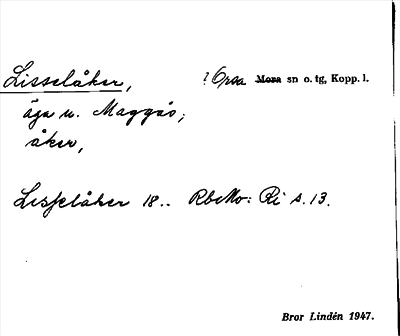 Lisselåker, ? Orsa Mora sn o. tg, Kopp. l.
äga u. Maggås,
åker,
Lisselåker 18.. RbMo: Ri s. 13.
Bror Lindén 1947.